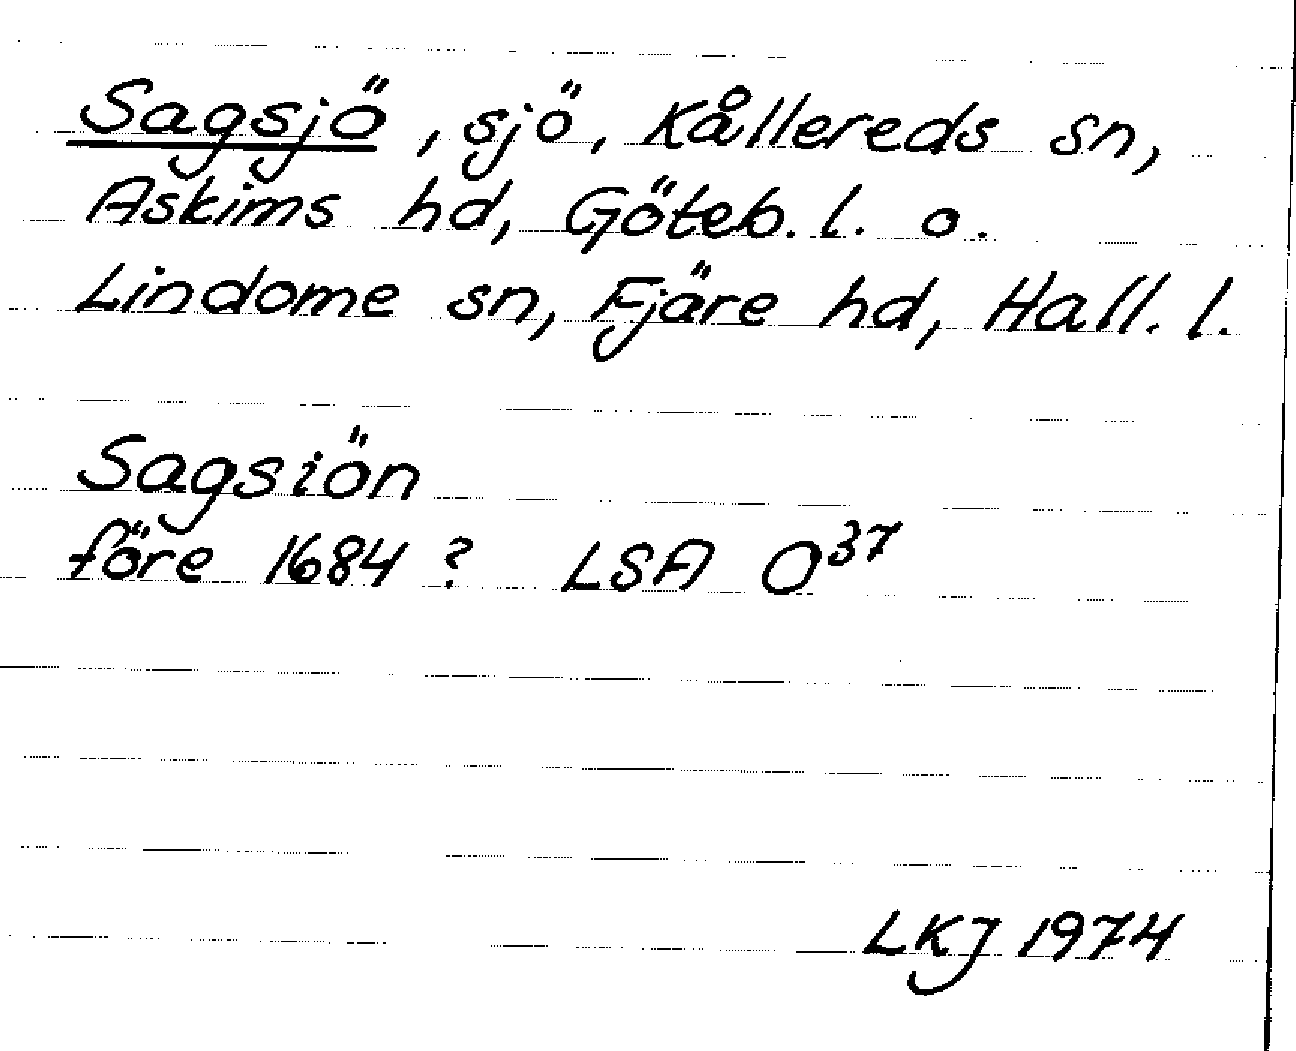 Sagsjö, sjö, Kållereds sn,
Askims hd, Göteb. l. o.
Lindome sn, Fjäre hd, Hall. l.
Sagsiön
före 1684? LSA O³⁷
LKJ 1974